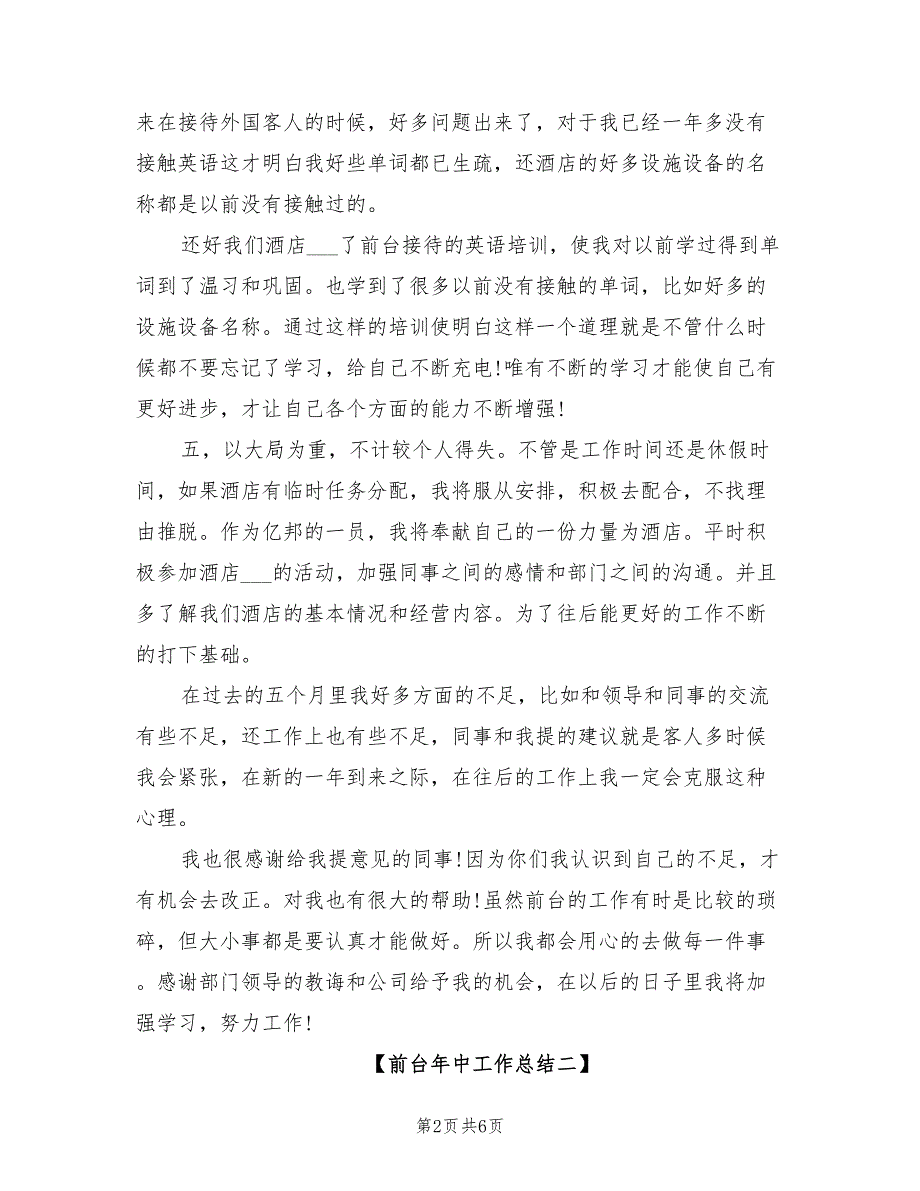 来在接待外国客人的时候，好多问题出来了，对于我已经一年多没有
接触英语这才明白我好些单词都已生疏，还酒店的好多设施设备的名
称都是以前没有接触过的。
还好我们酒店___了前台接待的英语培训，使我对以前学过得到单
词到了温习和巩固。也学到了很多以前没有接触的单词，比如好多的
设施设备名称。通过这样的培训使明白这样一个道理就是不管什么时
候都不要忘记了学习，给自己不断充电!唯有不断的学习才能使自己有
更好进步，才让自己各个方面的能力不断增强!
五，以大局为重，不计较个人得失。不管是工作时间还是休假时
间，如果酒店有临时任务分配，我将服从安排，积极去配合，不找理
由推脱。作为亿邦的一员，我将奉献自己的一份力量为酒店。平时积
极参加酒店___的活动，加强同事之间的感情和部门之间的沟通。并且
多了解我们酒店的基本情况和经营内容。为了往后能更好的工作不断
的打下基础。
在过去的五个月里我好多方面的不足，比如和领导和同事的交流
有些不足，还工作上也有些不足，同事和我提的建议就是客人多时候
我会紧张，在新的一年到来之际，在往后的工作上我一定会克服这种
心理。
我也很感谢给我提意见的同事!因为你们我认识到自己的不足，才
有机会去改正。对我也有很大的帮助!虽然前台的工作有时是比较的琐
碎，但大小事都是要认真才能做好。所以我都会用心的去做每一件事
。感谢部门领导的教诲和公司给予我的机会，在以后的日子里我将加
强学习，努力工作!
【前台年中工作总结二】
第2页 共6页